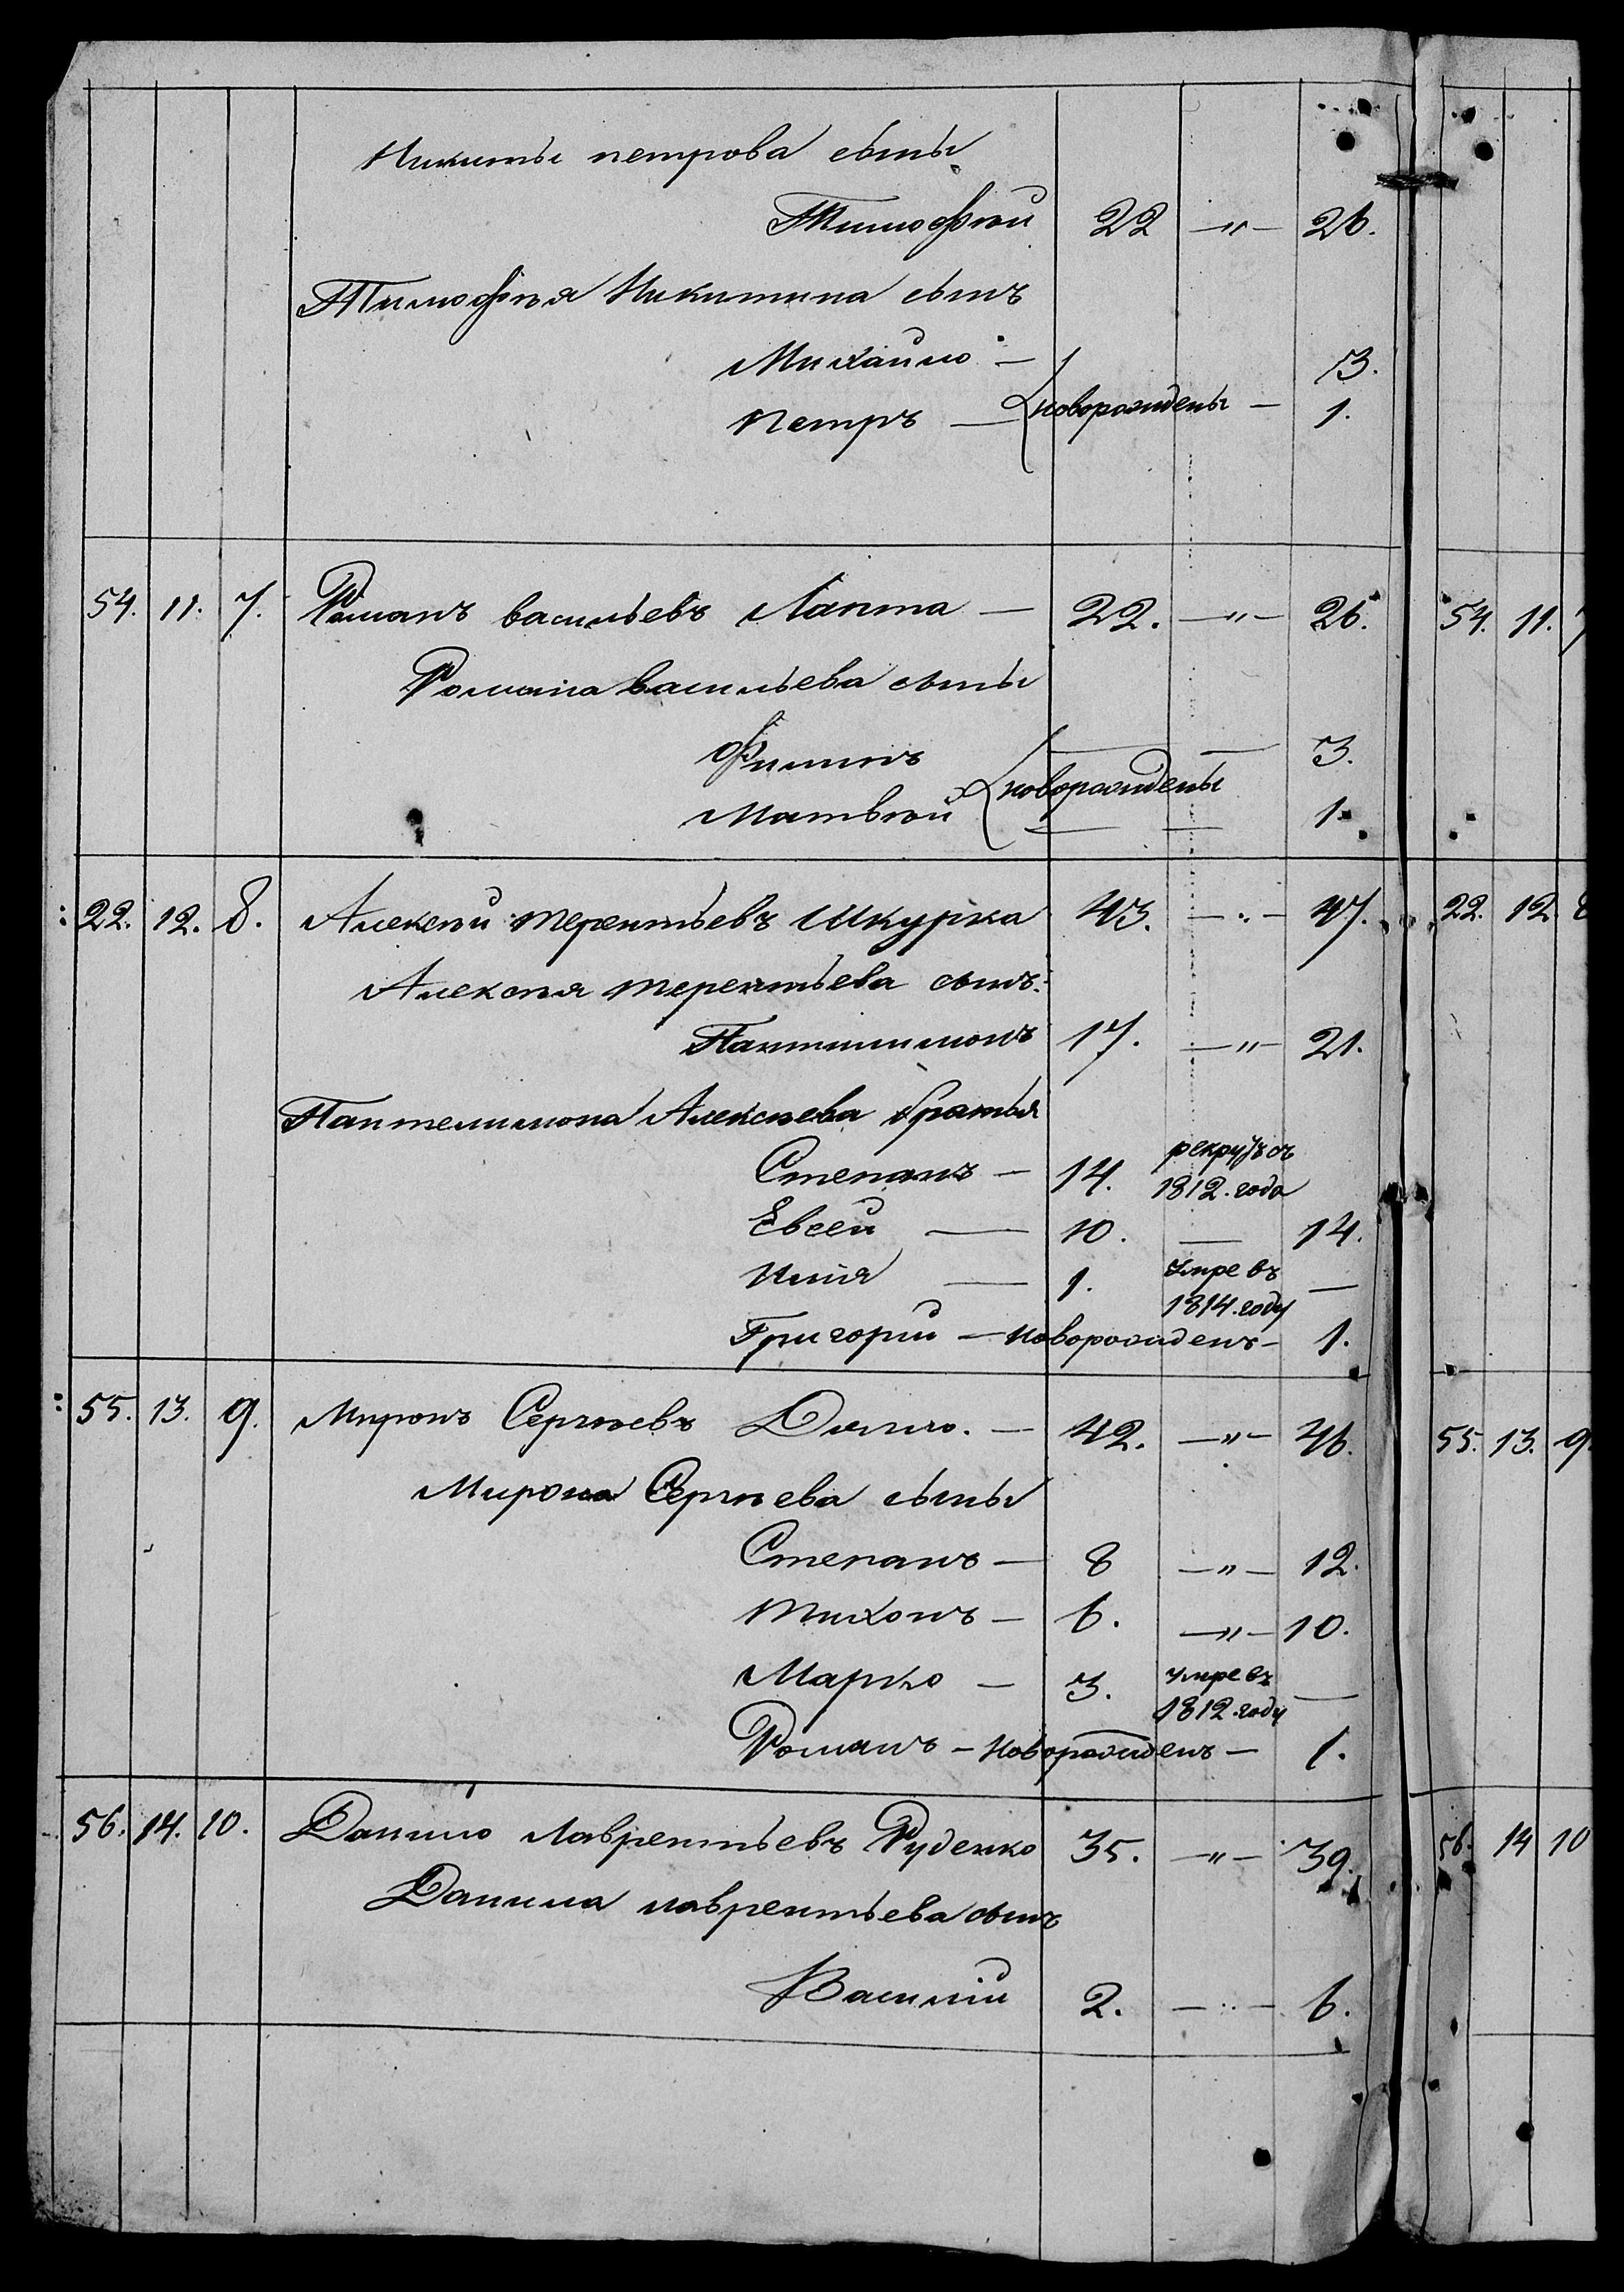 Никиты петрова сыны
Тимофѣй 22 —"— 26.
Тимофѣя Никитина сынъ
Михайло — 3.
Петръ — новорождены — 1.
54. 11. 7. Романъ васильевъ Лапта — 22. —"— 26. 54. 11. 7
Романа васильева сыны
Филипъ — — 3.
новорождены
Матвѣй — — 1.
22. 12. 8. Алексѣй терентьевъ Шкурка 43. —"— 47. 22. 12. 8
Алексѣя терентьева сынъ:
Пантилимонъ 17. —"— 21.
Пантелимона Алексѣева братья
рекрутъ съ
Степанъ — 14. 1812. года
Евсей — 10. — 14.
умре въ
Илія — 1. —
1814. году
Григорій — новорожденъ — 1.
55. 13. 9. Миронъ Сергѣевъ — 42. —"— 46. 55. 13. 9.
Мирона Сергѣева сыны
Степанъ — 8 —"— 12.
Тихонъ — 6. —"— 10.
умре въ
Марко — 3. —
1812. году
Романъ — новорожденъ — 1.
56. 14. 10. Данило лаврентьевъ Руденко 35. —"— 39. 56. 14 10
Данила лаврентьева сынъ
Василій 2. —"— 6.